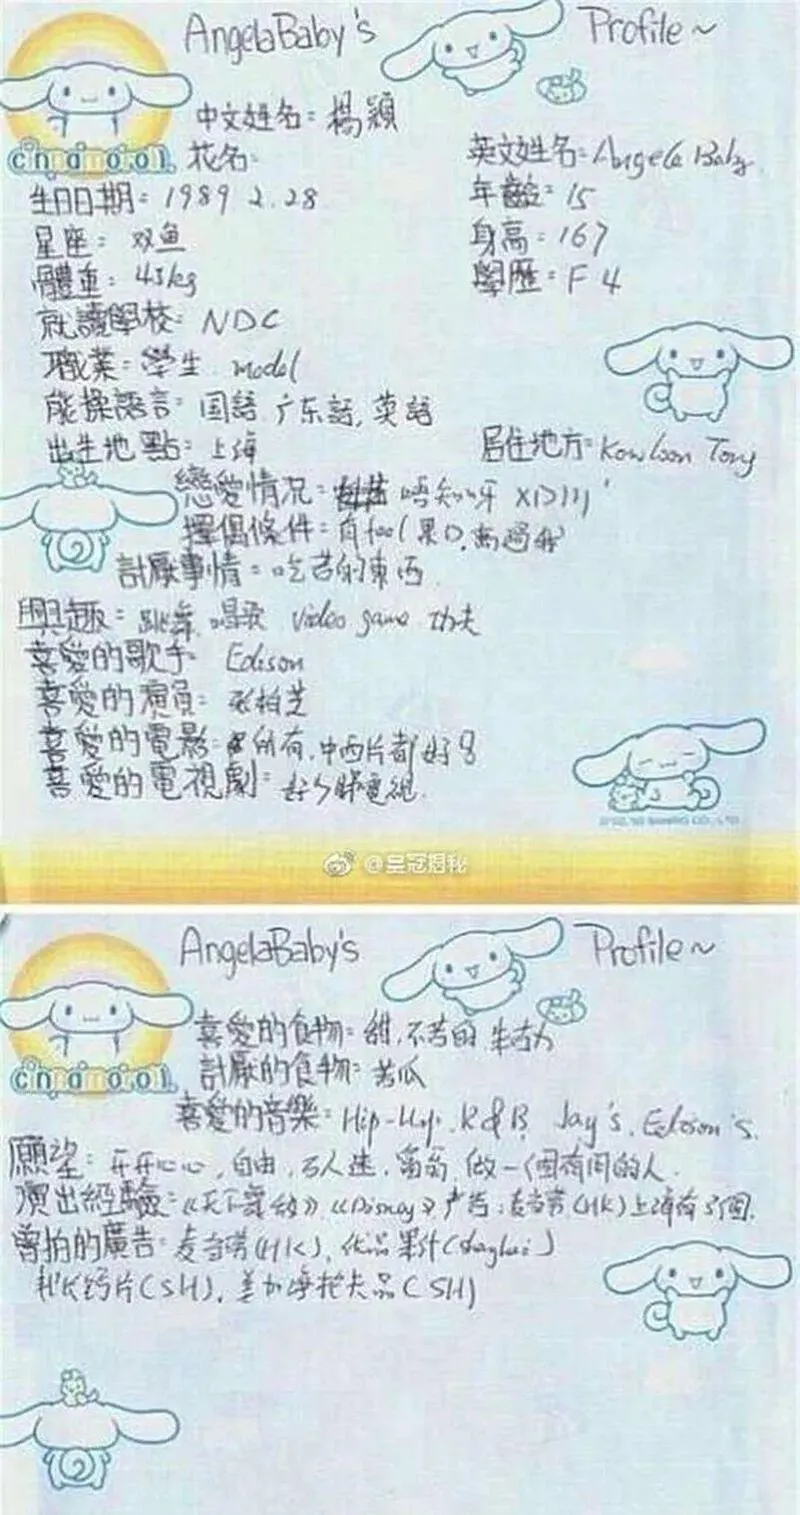 AngelaBaby's Profile~
中文姓名: 楊穎
cinnamoroll 花名: 英文姓名: Angela Baby
生日日期: 1989 2.28 年齡: 15
星座: 双鱼 身高: 167
體重: 45kg 學歷: F 4
就讀學校: NDC
職業: 學生. model
能操語言: 国語. 广东話, 英語
出生地點: 上海 居住地方: Kowloon Tong
戀愛情況: 唔知呀 XD111'
擇偶條件: 有feel 果D. 高過我
討厭事情: 吃苦的東西
興趣: 跳舞. 唱歌 video game 功夫
喜愛的歌手 Edison
喜愛的演員: 张柏芝
喜愛的電影: 所有, 中西片都好
喜愛的電視劇: 好少睇電視.
@皇冠揭秘
AngelaBaby's Profile~
喜愛的食物: 甜, 不苦的
cinnamoroll 討厭的食物: 苦瓜
喜愛的音樂: Hip-Hop. R&B. Jay's. Edison's.
願望: 开开心心, 自由, 万人迷, 做一个有用的人.
演出經驗: 《Disney》广告: 麦当劳(HK)上海有
曾拍的廣告: 麦当劳(HK), 果汁(Shanghai)
钙片(SH), (SH)